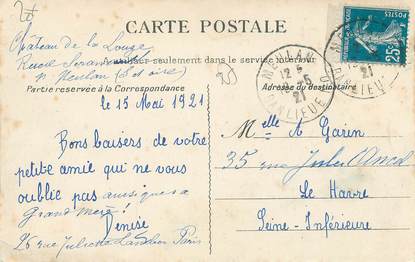 CARTE POSTALE
Château de la Louze
Rueil Seraincourt
p. Meulan (S et oise)
A utiliser seulement dans le service intérieur
Partie réservée à la Correspondance
Adresse du destinataire
le 15 Mai 1921
Bons baisers de votre
petite amie qui ne vous
oublie pas ainsi que sa
Grand Mère!
Denise
26 rue Juliette Lamber Paris
Melle A Garin
35 rue Jules Ancel
Le Havre
Seine-Inférieure
MEULAN
21
POSTES
25c